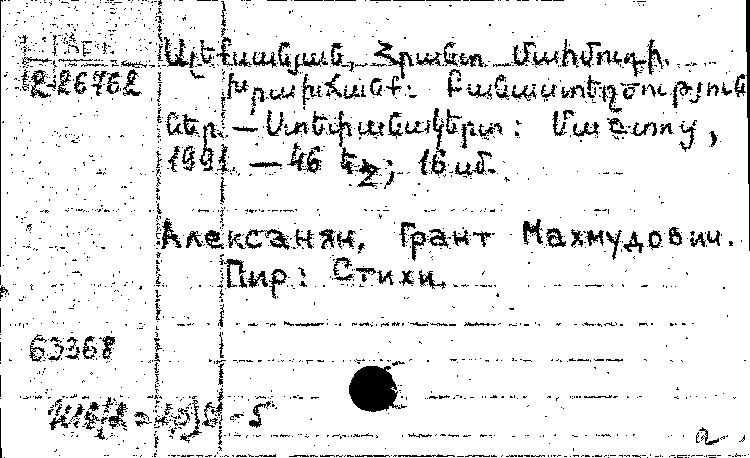 2-26762
Ալեքսանյան, Հրանտ Մախմուդի.
Խրախճանք: Բանաստեղծություն
ներ. — Ստեփանակերտ: Մաշտոց,
1991. — 46 էջ; 16 սմ.
Алексанян, Грант Махмудович.
Пир: Стихи.
63368
а